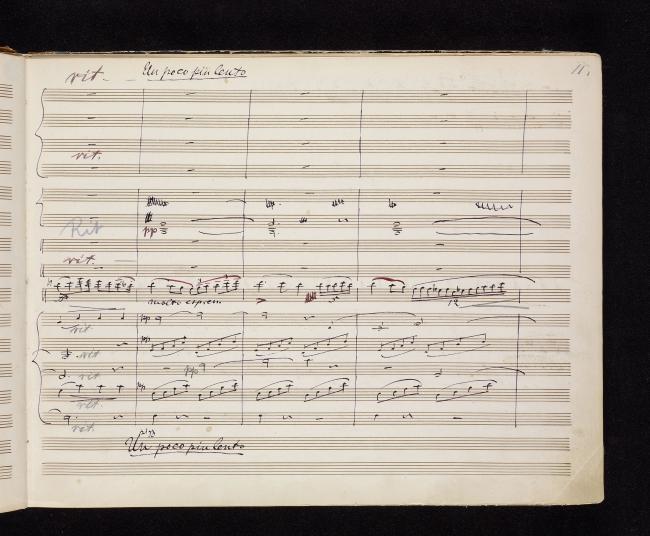 rit. Un poco più lento 11.
rit.
pp
Rit
rit.
molto espress.
12
rit.
pp
rit
pp
rit
pp
rit.
rit.
pizz
Un poco più lento